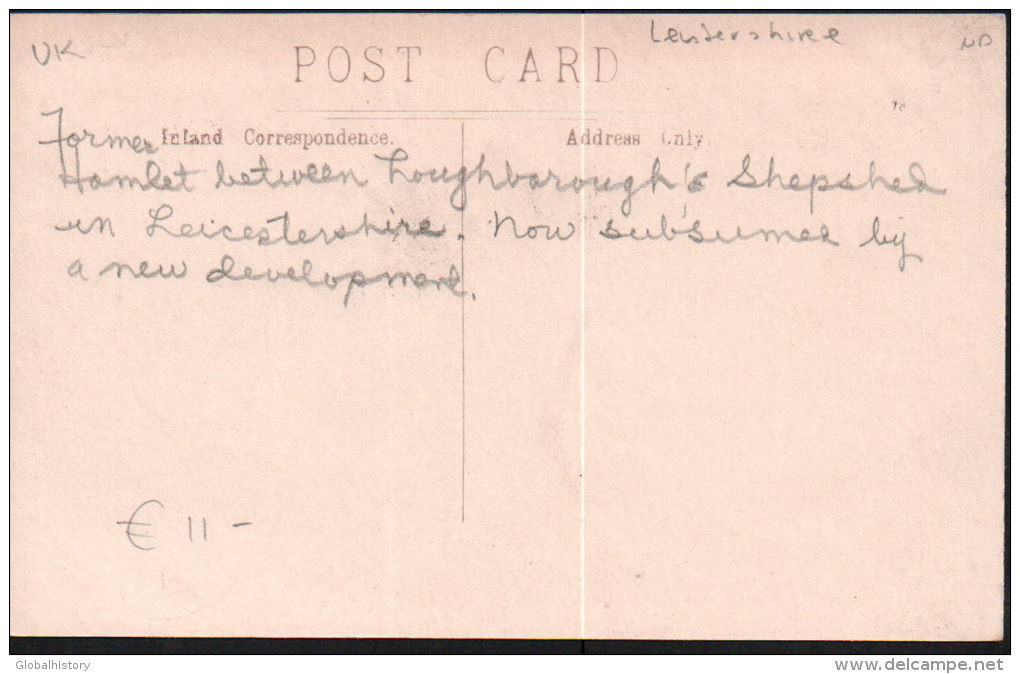 UK
Leistershire
ND
POST CARD
Inland Correspondence.
Address Only.
Former
Hamlet between Loughborough & Shepshed
in Leicestershire. Now subsumed by
a new development.
€ 11 -
Globalhistory
www.delcampe.net